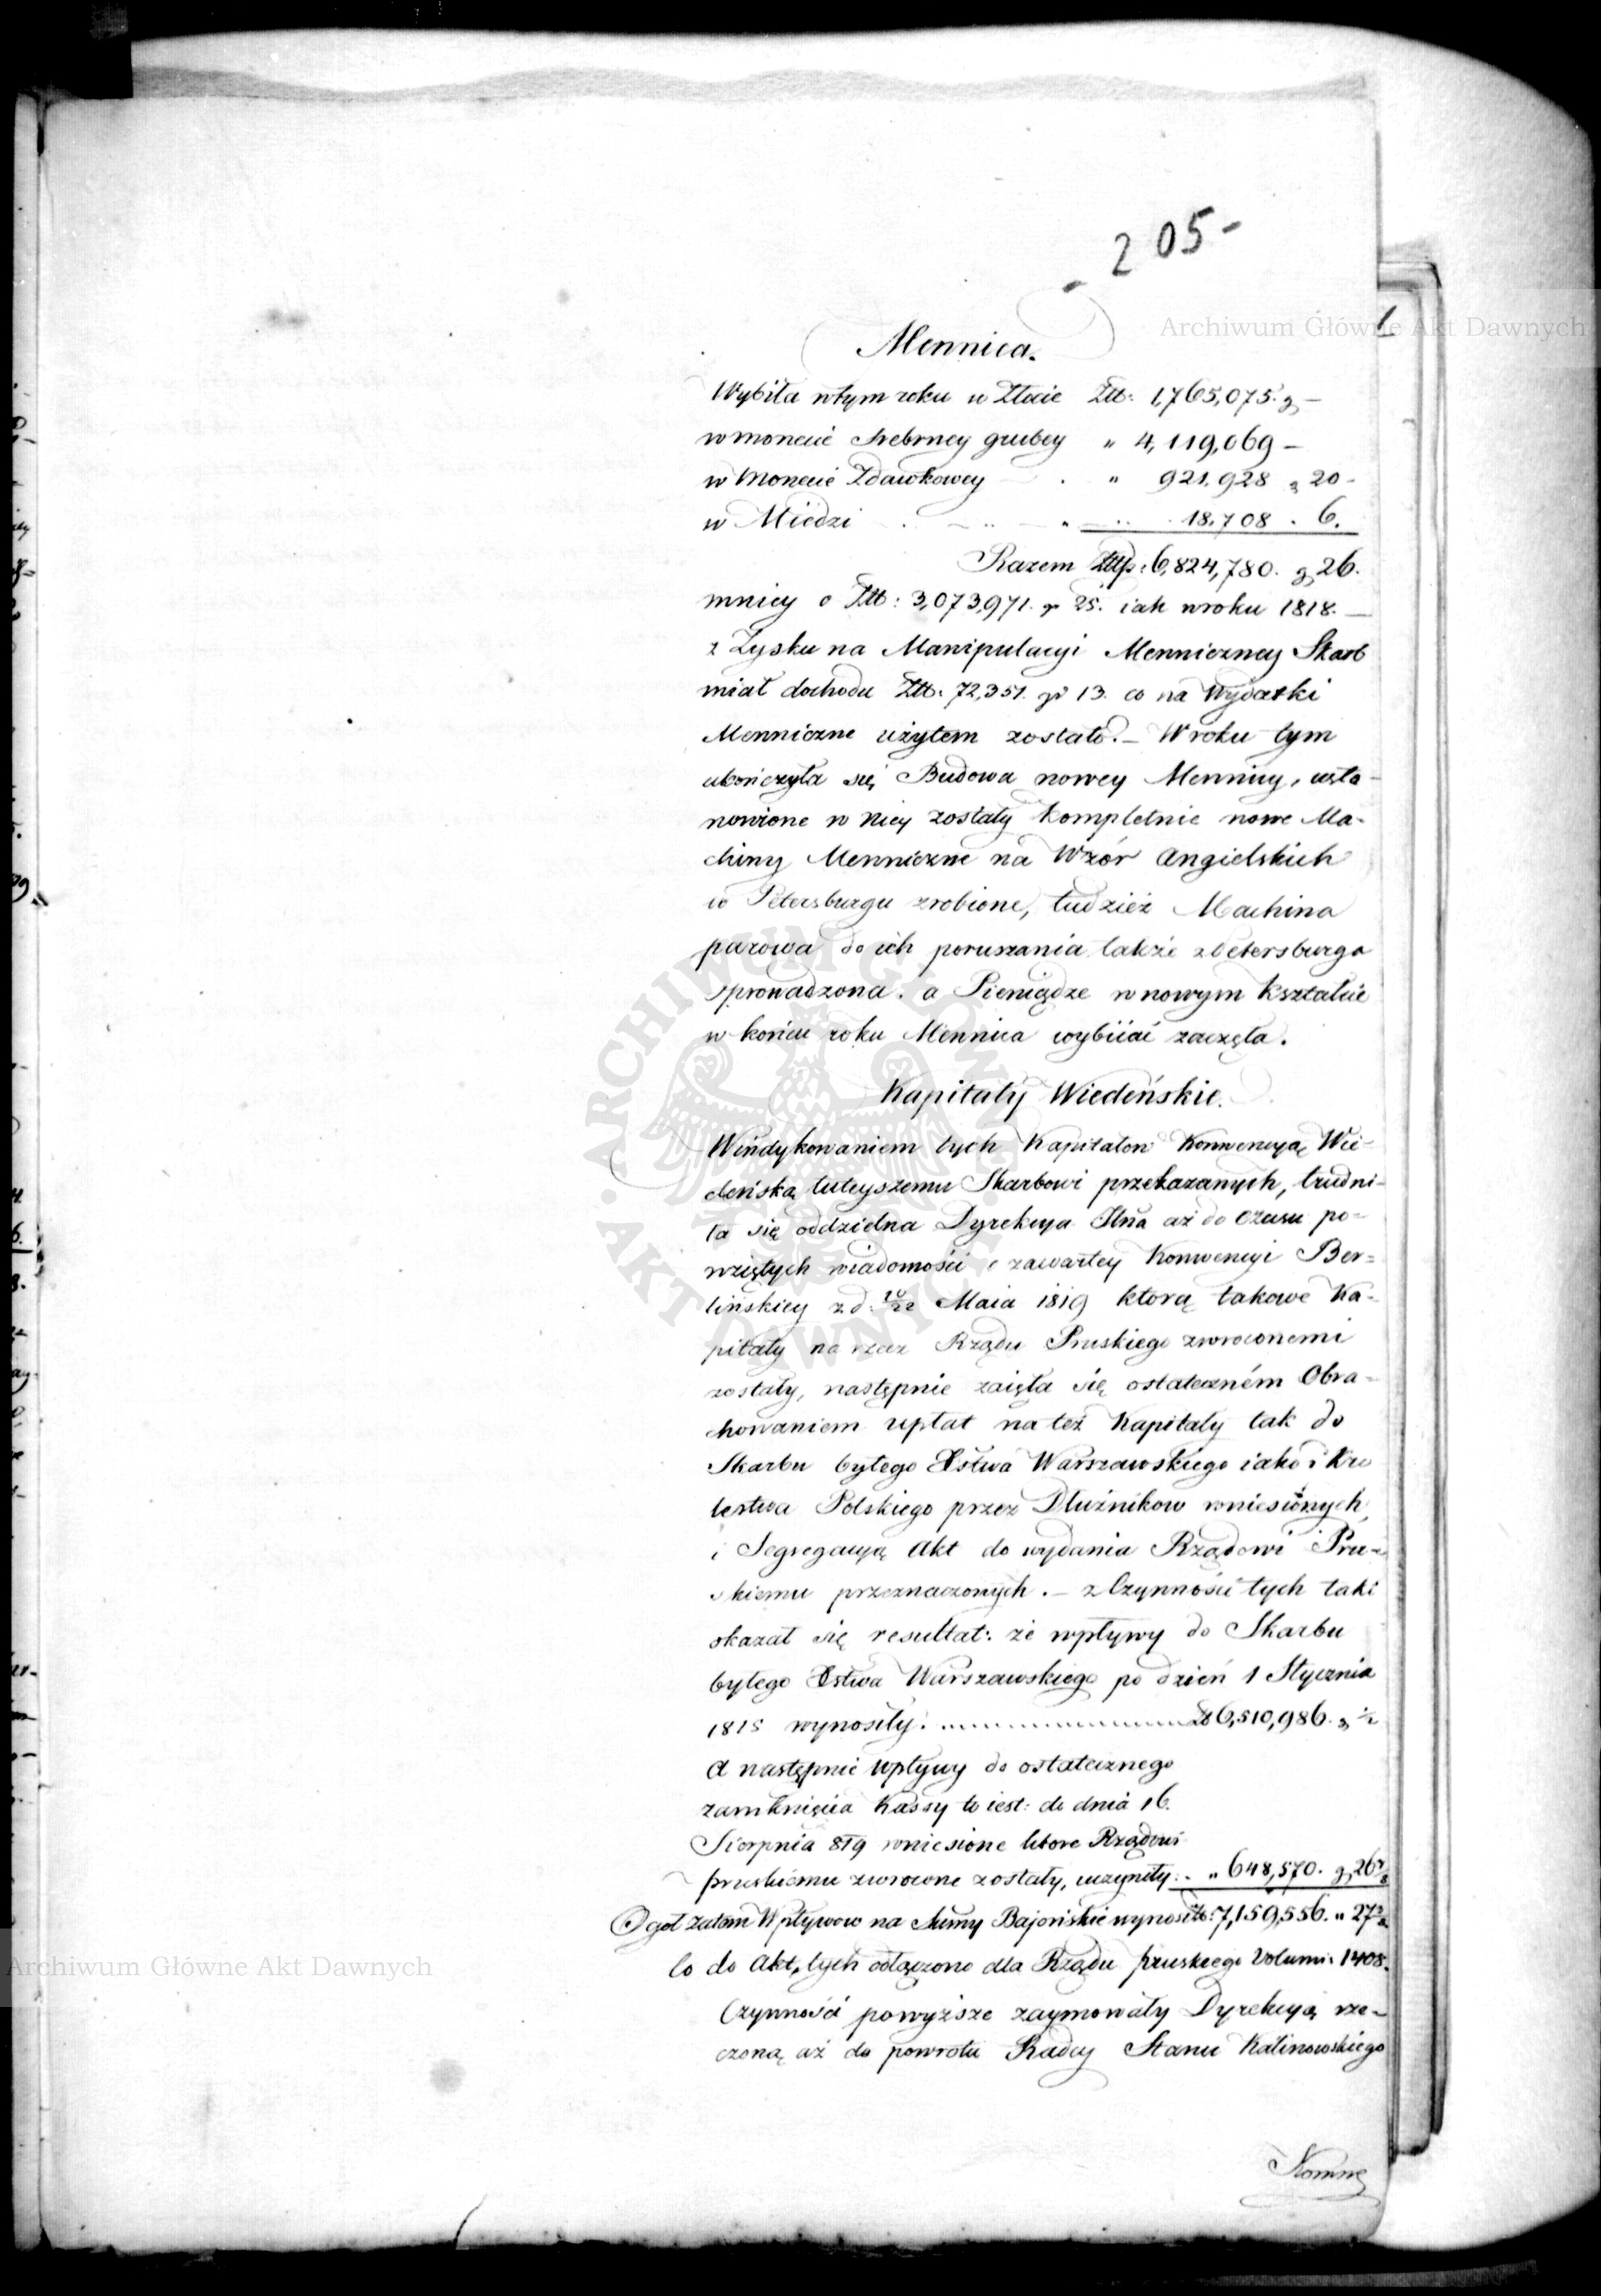 - 205 -
Archiwum Główne Akt Dawnych
Mennica.
Wybiła w tym roku w Złocie Złt: 1,765,075. g –
w monecie Srebrney grubey " 4,119,069 –
w Monecie Zdawkowey " 921,928 g 20 -
w Miedzi " 18,708 . 6.
Razem Złłp: 6,824,780. g 26.
mniey o Złt: 3,073,971. gr 25. iak w roku 1818. –
z Zysku na Manipulacyi Menniczney Skarb
miał dochodu Złt. 72,351. gr 13. co na Wydatki
Menniczne użytem zostało. – W roku tym
ukończyła się Budowa nowey Mennicy, usta-
nowione w niey zostały kompletnie nowe Ma-
chiny Menniczne na Wzór Angielskich
w Petersburgu zrobione, tudzież Machina
parowa do ich poruszania także z Petersburga
sprowadzona. a Pieniądze w nowym kształcie
w końcu roku Mennica wybiiać zaczęła.
Kapitały Wiedeńskie.
Windykowaniem tych Kapitałow Konwencyą Wie-
deńską tuteyszemu Skarbowi przekazanych, trudni-
ła się oddzielna Dyrekcya aż do czasu po-
wziętych wiadomości o zawartey Konwencyi Ber-
lińskiey z d. 10/22 Maia 1819 ktorą takowe Ka-
pitały na rzecz Rządu Pruskiego zwroconemi
zostały, następnie zaięła się ostateczném Obra-
chowaniem upłat na też Kapitały tak do
Skarbu byłego Xstwa Warszawskiego iako i Kro
lestwa Polskiego przez Dłużnikow wniesionych,
i Segregacyą Akt do wydania Rządowi Pru-
skiemu przeznaczonych. – z Czynności tych taki
okazał się resultat: że wpływy do Skarbu
byłego Xstwa Warszawskiego po dzień 1 Stycznia
1815 wynosiły: ........................ Zł 6,510,986. g ½
a następnie wpływy do ostatecznego
zamknięcia Kassy to iest: do dnia 16.
Sierpnia 819 wniesione ktore Rządowi
pruskiemu zwrocone zostały, uczyniły: . " 648,570. g 26
Ogoł zatem Wpływow na Summy Bajońskie wynosi Zł: 7,159,556. " 27
Co do Akt, tych odłączono dla Rządu pruskiego Volum: 1408.
Czynności powyższe zaymowały Dyrekcyą rze-
czoną aż do powrotu Radcy Stanu Kalinowskiego
Archiwum Główne Akt Dawnych
ARCHIWUM GŁÓWNE AKT DAWNYCH